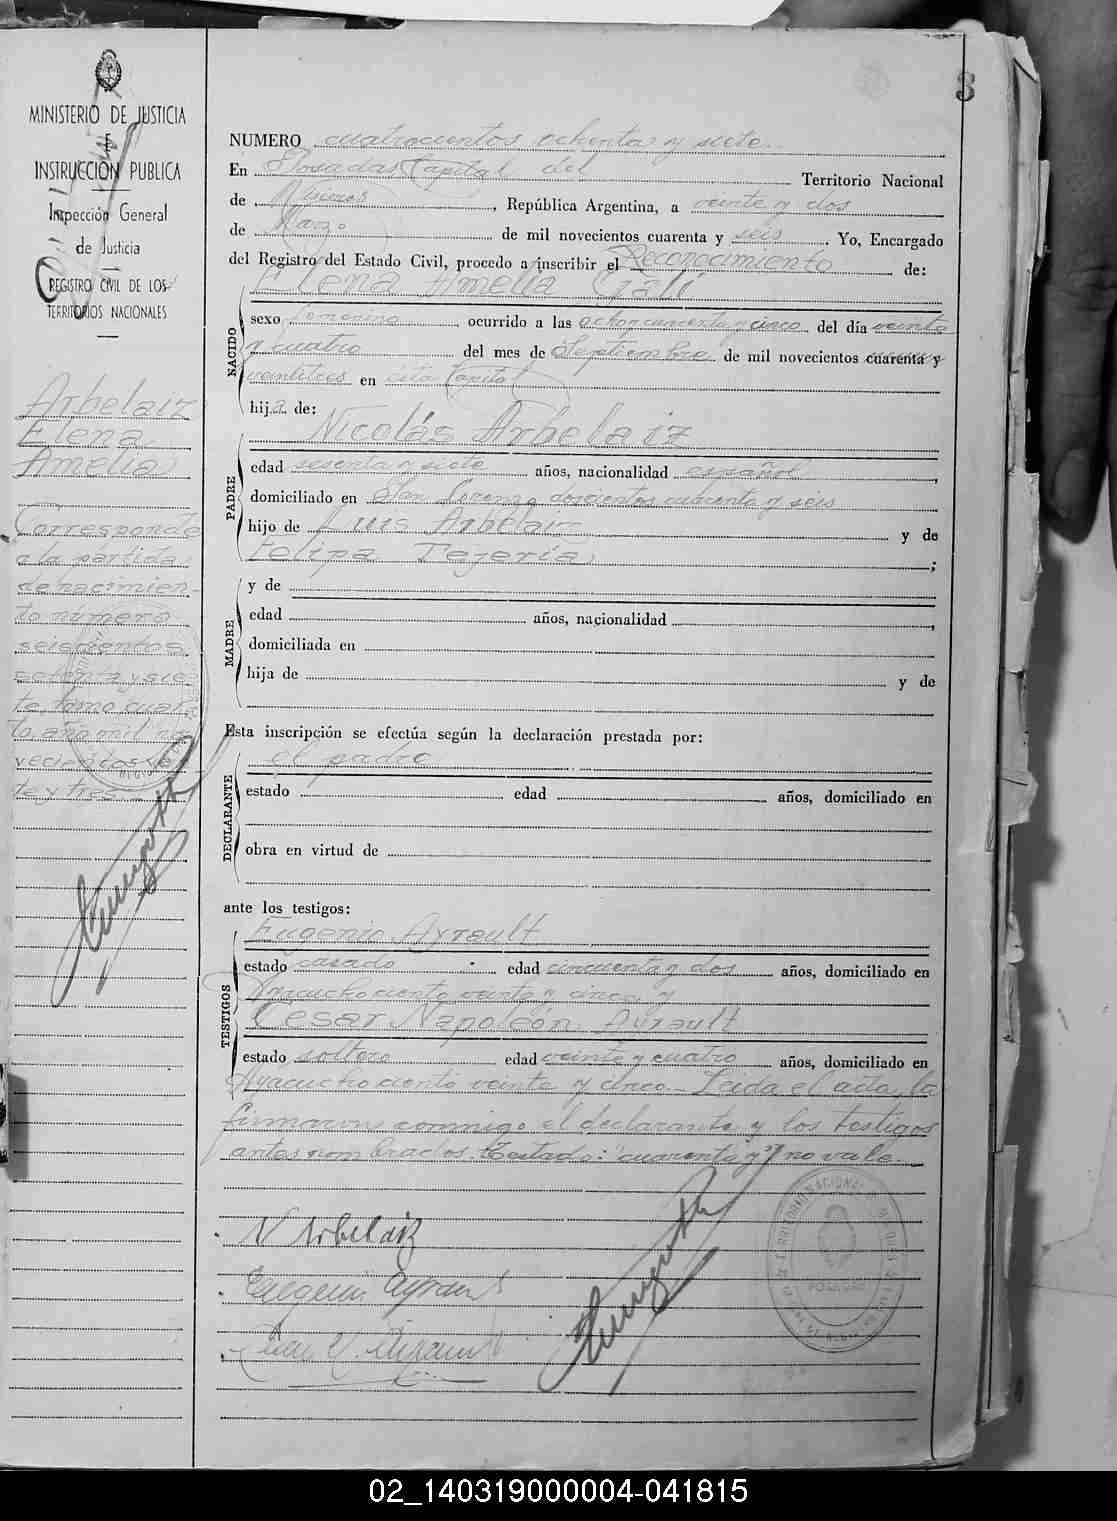 3
MINISTERIO DE JUSTICIA
E
INSTRUCCIÓN PUBLICA
Inspección General
de Justicia
REGISTRO CIVIL DE LOS
TERRITORIOS NACIONALES
Arbelaiz
Elena
Amelia
Corresponde
a la partida
de nacimien-
to número
seiscientos
setenta y sie
te, tomo cuar
to año mil no
vecientos vein
te y tres.
NUMERO cuatrocientos ochenta y siete.
En Posadas Capital del Territorio Nacional
de Misiones, República Argentina, a veinte y dos
de Marzo de mil novecientos cuarenta y seis. Yo, Encargado
del Registro del Estado Civil, procedo a inscribir el Reconocimiento de:
Elena Amelia Galí
NACIDO
sexo femenino, ocurrido a las ocho y cincuenta y cinco del día veinte
y cuatro del mes de Septiembre de mil novecientos cuarenta y
veintitres en esta Capital
hija de:
Nicolás Arbelaiz
PADRE
edad sesenta y siete años, nacionalidad español
domiciliado en San Lorenzo doscientos cuarenta y seis
hijo de Luis Arbelaiz y de
Felipa Tejería;
MADRE
y de
edad años, nacionalidad ,
domiciliada en
hija de y de
Esta inscripción se efectúa según la declaración prestada por:
el padre
DECLARANTE
estado edad años, domiciliado en
obra en virtud de
ante los testigos:
TESTIGOS
Eugenio Ayrault
estado casado edad cincuenta y dos años, domiciliado en
Ayacucho ciento veinte y cinco y
Cesar Napoleón Ayrault
estado soltero edad veinte y cuatro años, domiciliado en
Ayacucho ciento veinte y cinco.- Leida el acta, la
firmaron conmigo el declarante y los testigos
antes nombrados. Testado: "cuarenta y" no vale.
N Arbelaiz
Eugenio Ayrault
POSADAS
02_140319000004-041815